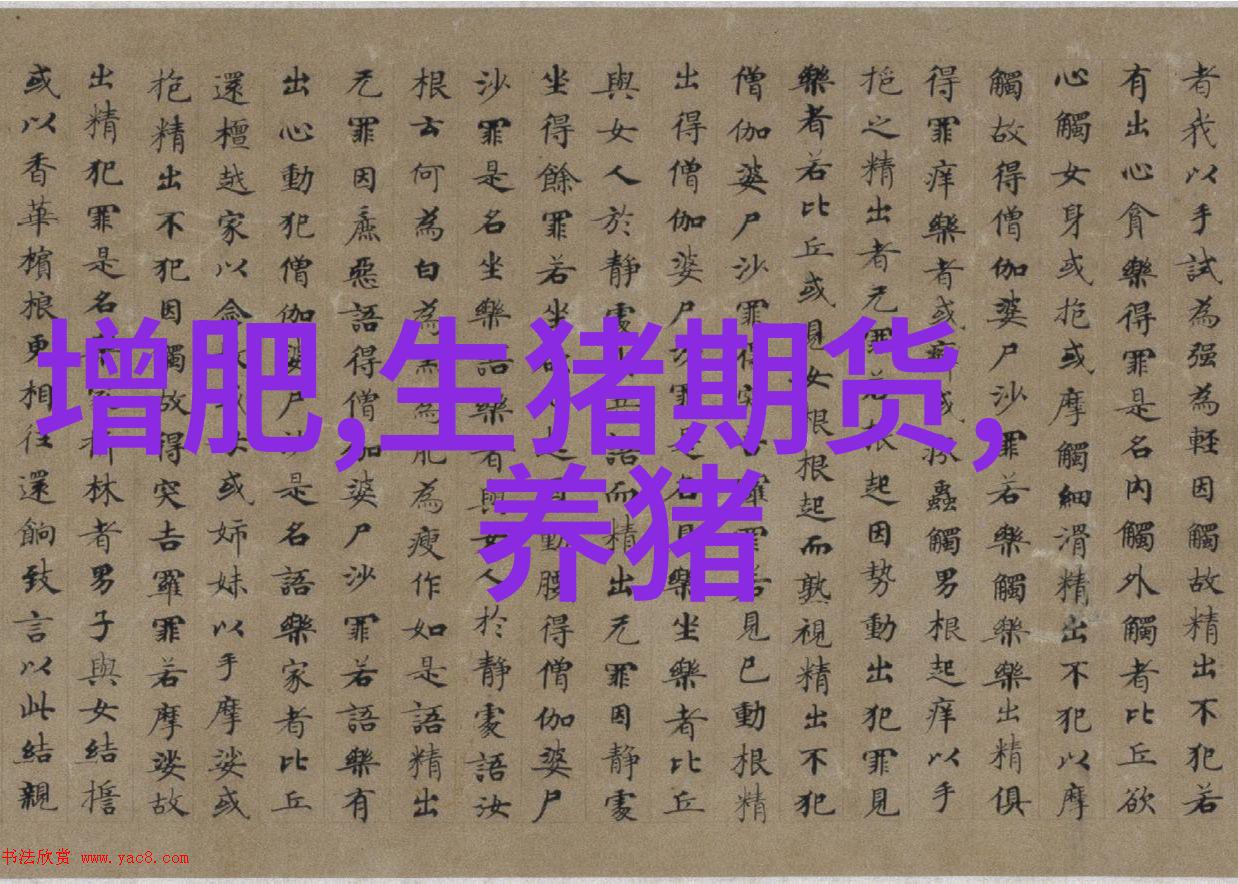 增肥,生猪期货,
养猪
者我以手試為强為軽因觸故精出不犯若
有出心貪樂得罪是名内觸外觸者比丘欲
心觸女身或抱或摩觸細滑精出不犯以摩
觸故得僧伽婆尸沙罪若樂觸觸樂樂出精俱
得罪痒樂者或或蟲觸男根起痒以手
抱之精出者无罪若根起因势動出犯罪見
樂者若比丘或見女根根起而熟視精出不犯
僧伽婆尸沙罪得突羅罪若見已動根精
出得僧伽婆尸沙罪是名見樂坐樂者比丘
與女人於静處語而精出无罪因静處
坐得餘罪若坐起因動腰得僧伽婆尸
沙罪是名坐樂語樂者與女人於静處語汝
根云何為白為黑為肥為瘦作如是語精出
无罪因麁惡語得僧伽婆尸沙罪若語樂有
出心動犯僧伽婆尸沙是名語樂家者比丘
還檀越家以念故或或姉妹以手摩娑或
抱精出不犯因觸故得突吉羅罪若摩娑故
出精犯罪是名林者男子與女結誓
或以香華檳榔更相往還餉致言以此結親
书法欣赏 www.yac8.com